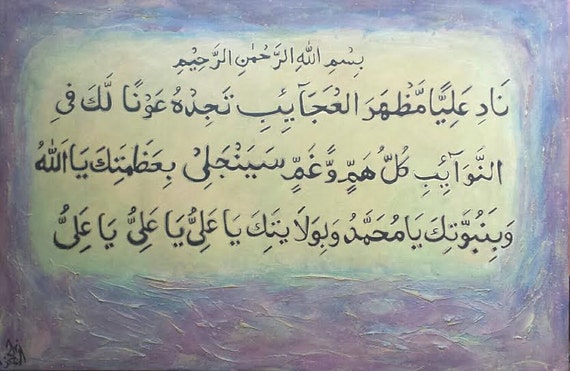 بِسْمِ اللهِ الرَّحْمٰنِ الرَّحِيْمِ
نَادِ عَلِيًّا مَّظْهَرَ الْعَجَآئِبِ تَجِدْهُ عَوْنًا لَّكَ فِي
النَّوَآئِبِ كُلُّ هَمٍّ وَّغَمٍّ سَيَنْجَلِيْ بِعَظَمَتِكَ يَا اَللهُ
وَبِنَبُوَّتِكَ يَا مُحَمَّدُ وَبِوِلَايَتِكَ يَا عَلِيُّ يَا عَلِيُّ يَا عَلِيُّ